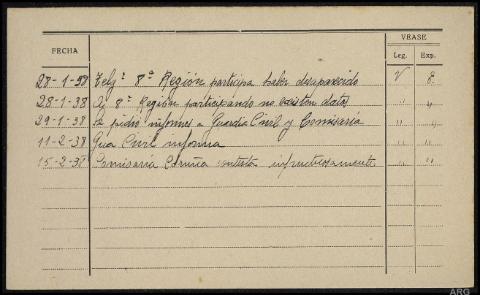 VEASE
FECHA
Leg. Exp.
28-1-38 Telg: 8ª Región participa haber desaparecido V 8
28-1-38 Of 8ª Región participando no existen datos " "
29-1-38 Se pidió informes a Guardia Civil y Comisaria " "
11-2-38 Gua Civil informa " "
15-2-38 Comisaría Coruña contesta infructuosamente " "
ARG